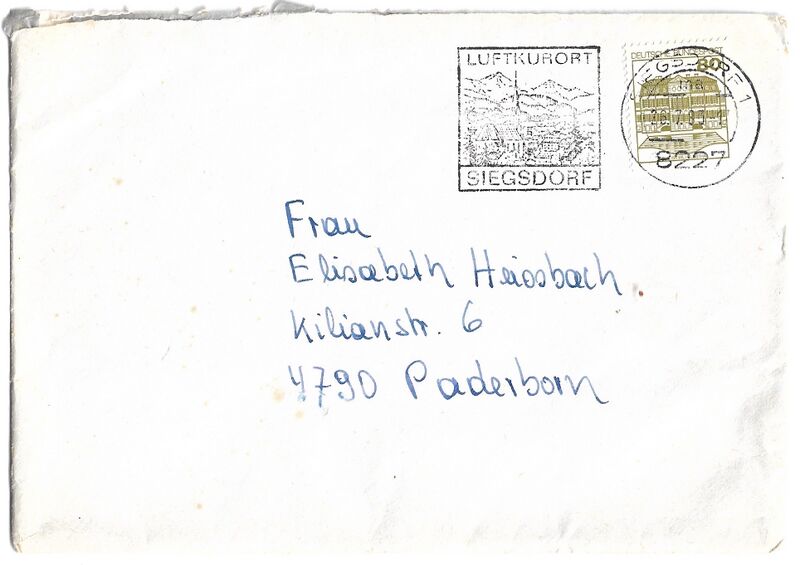 LUFTKURORT
SIEGSDORF
DEUTSCHE BUNDESPOST
80
SIEGSDORF 1
8227
Frau
Elisabeth
Kilianstr. 6
4790 Paderborn